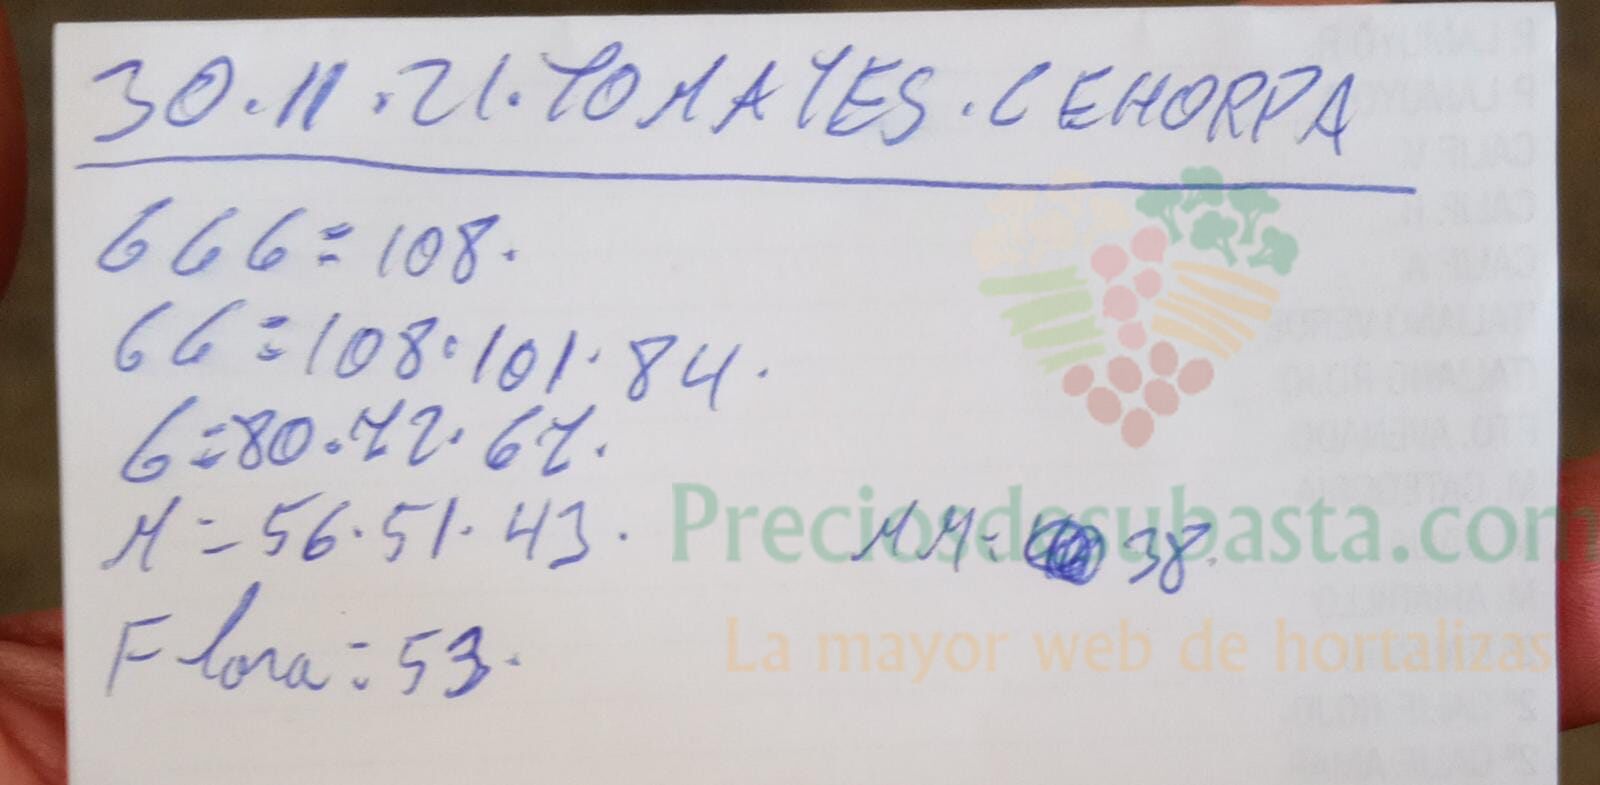 30.11.21.TOMATES.CEHORPA
GGG=108.
GG=108.101.84.
G=80.72.67.
M=56.51.43. MM= 38.
Flora=53.
Preciosdesubasta.com
La mayor web de hortalizas